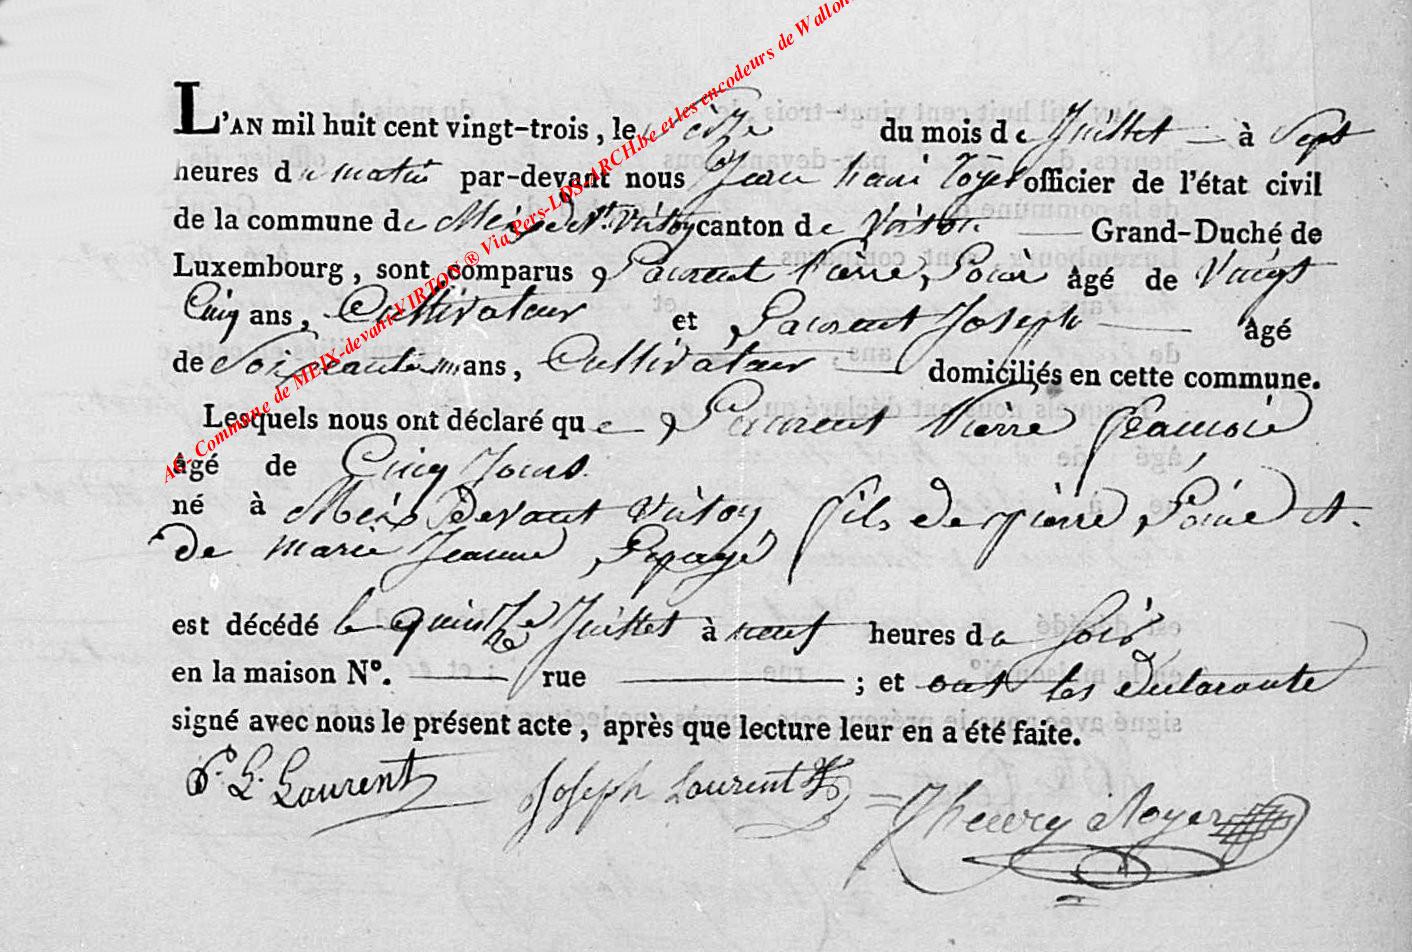 L'AN mil huit cent vingt-trois, le seize du mois de Juillet à Sept
heures du matin par-devant nous Jean henri Noyer officier de l'état civil
de la commune de Meix Dvt. Virton canton de Virton Grand-Duché de
Luxembourg, sont comparus Laurent Pierre, Louis âgé de Vingt
Cinq ans, Cultivateur et Laurent Joseph âgé
de Soixante un ans, Cultivateur domiciliés en cette commune.
Lesquels nous ont déclaré que Laurent Pierre
âgé de Cinq Jours
né à Meix Devant Virton, fils de Pierre, Louis et
De marie Jeanne
est décédé le quinze Juillet à neuf heures du soir
en la maison N°. rue ; et ont les Declarants
signé avec nous le présent acte, après que lecture leur en a été faite.
P. L. Laurent Joseph Laurent Jhenry Noyer
AE- Commune de MEIX-devant-VIRTON ® Via Pers-LDS-ARCH.be et les encodeurs de Wallon